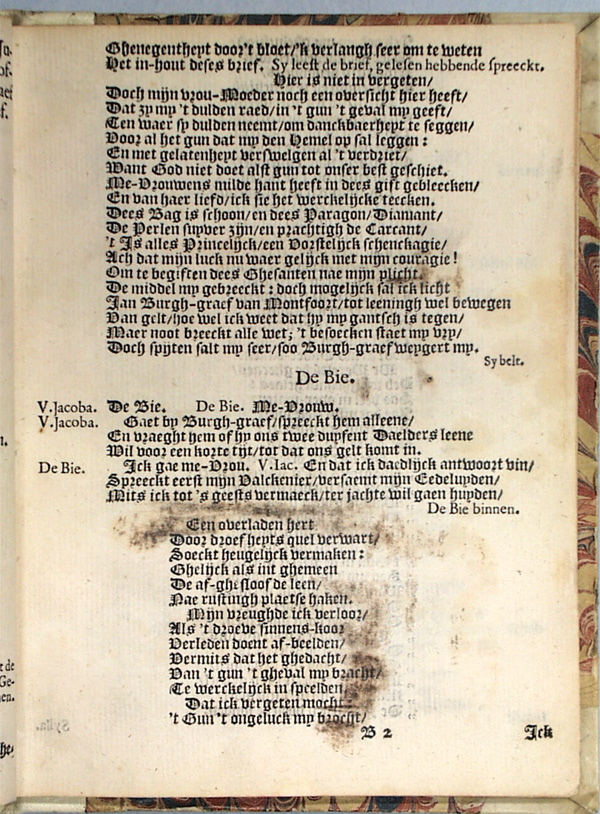 Ghenegentheyt door't bloet/'k verlangh seer om te weten
Het in-hout deses brief. Sy leest de brief, gelesen hebbende spreeckt.
Hier is niet in vergeten/
Doch mijn vrou-Moeder noch een oversicht hier heeft/
Dat zy my 't dulden raed/in 't gun 't geval my geeft/
Ten waer sy dulden neemt/om danckbaerheyt te seggen/
Voor al het gun dat my den Hemel op sal leggen:
En met gelatenheyt verswelgen al 't verdriet/
Want God niet doet alst gun tot onser best geschiet.
Me-Vrouwens milde hant heeft in dees gift gebleecken/
En van haer liefd/ick sie het werckelijcke teecken.
Dees Bag is schoon/en dees Paragon/Diamant/
De Perlen suyver zijn/en prachtigh de Carcant/
't Is alles Princelijck/een Vorstelijck schenckagie/
Ach dat mijn luck nu waer gelijck met mijn couragie!
Om te begiften dees Ghesanten nae mijn plicht.
De middel my gebreeckt: doch mogelijck sal ick licht
Jan Burgh-graef van Montfoort/tot leeningh wel bewegen
Van gelt/hoe wel ick weet dat hy my gantsch is tegen/
Maer noot breeckt alle wet; 't besoecken staet my vry/
Doch spijten salt my seer/soo Burgh-graef weygert my.
Sy belt.
De Bie.
V.Jacoba. De Bie. De Bie. Me-Vrouw.
V.Jacoba. Gaet by Burgh-graef/spreeckt hem alleene/
En vraeght hem of hy ons twee duysent Daelders leene
Wil voor een korte tijt/tot dat ons gelt komt in.
De Bie. Ick gae me-Vrou. V.Iac. En dat ick daedlijck antwoort vin/
Spreeckt eerst mijn Valckenier/versaemt mijn Eedeluyden/
Mits ick tot 's geests vermaeck/ter jachte wil gaen huyden/
De Bie binnen.
Een overladen hert
Door droefheyts quel verwart/
Soeckt heugelijck vermaken:
Ghelijck als int ghemeen
De af-ghesloofde leen/
Nae rustingh plaetse haken.
Mijn vreughde ick verloor/
Als 't droeve sinnens-koor
Verleden doent af-beelden/
Vermits dat het ghedacht/
Van 't gun 't gheval my bracht/
Te werckelijck in speelden/
Dat ick vergeten mocht:
't Gun 't ongeluck my brocht/
B 2 Ick